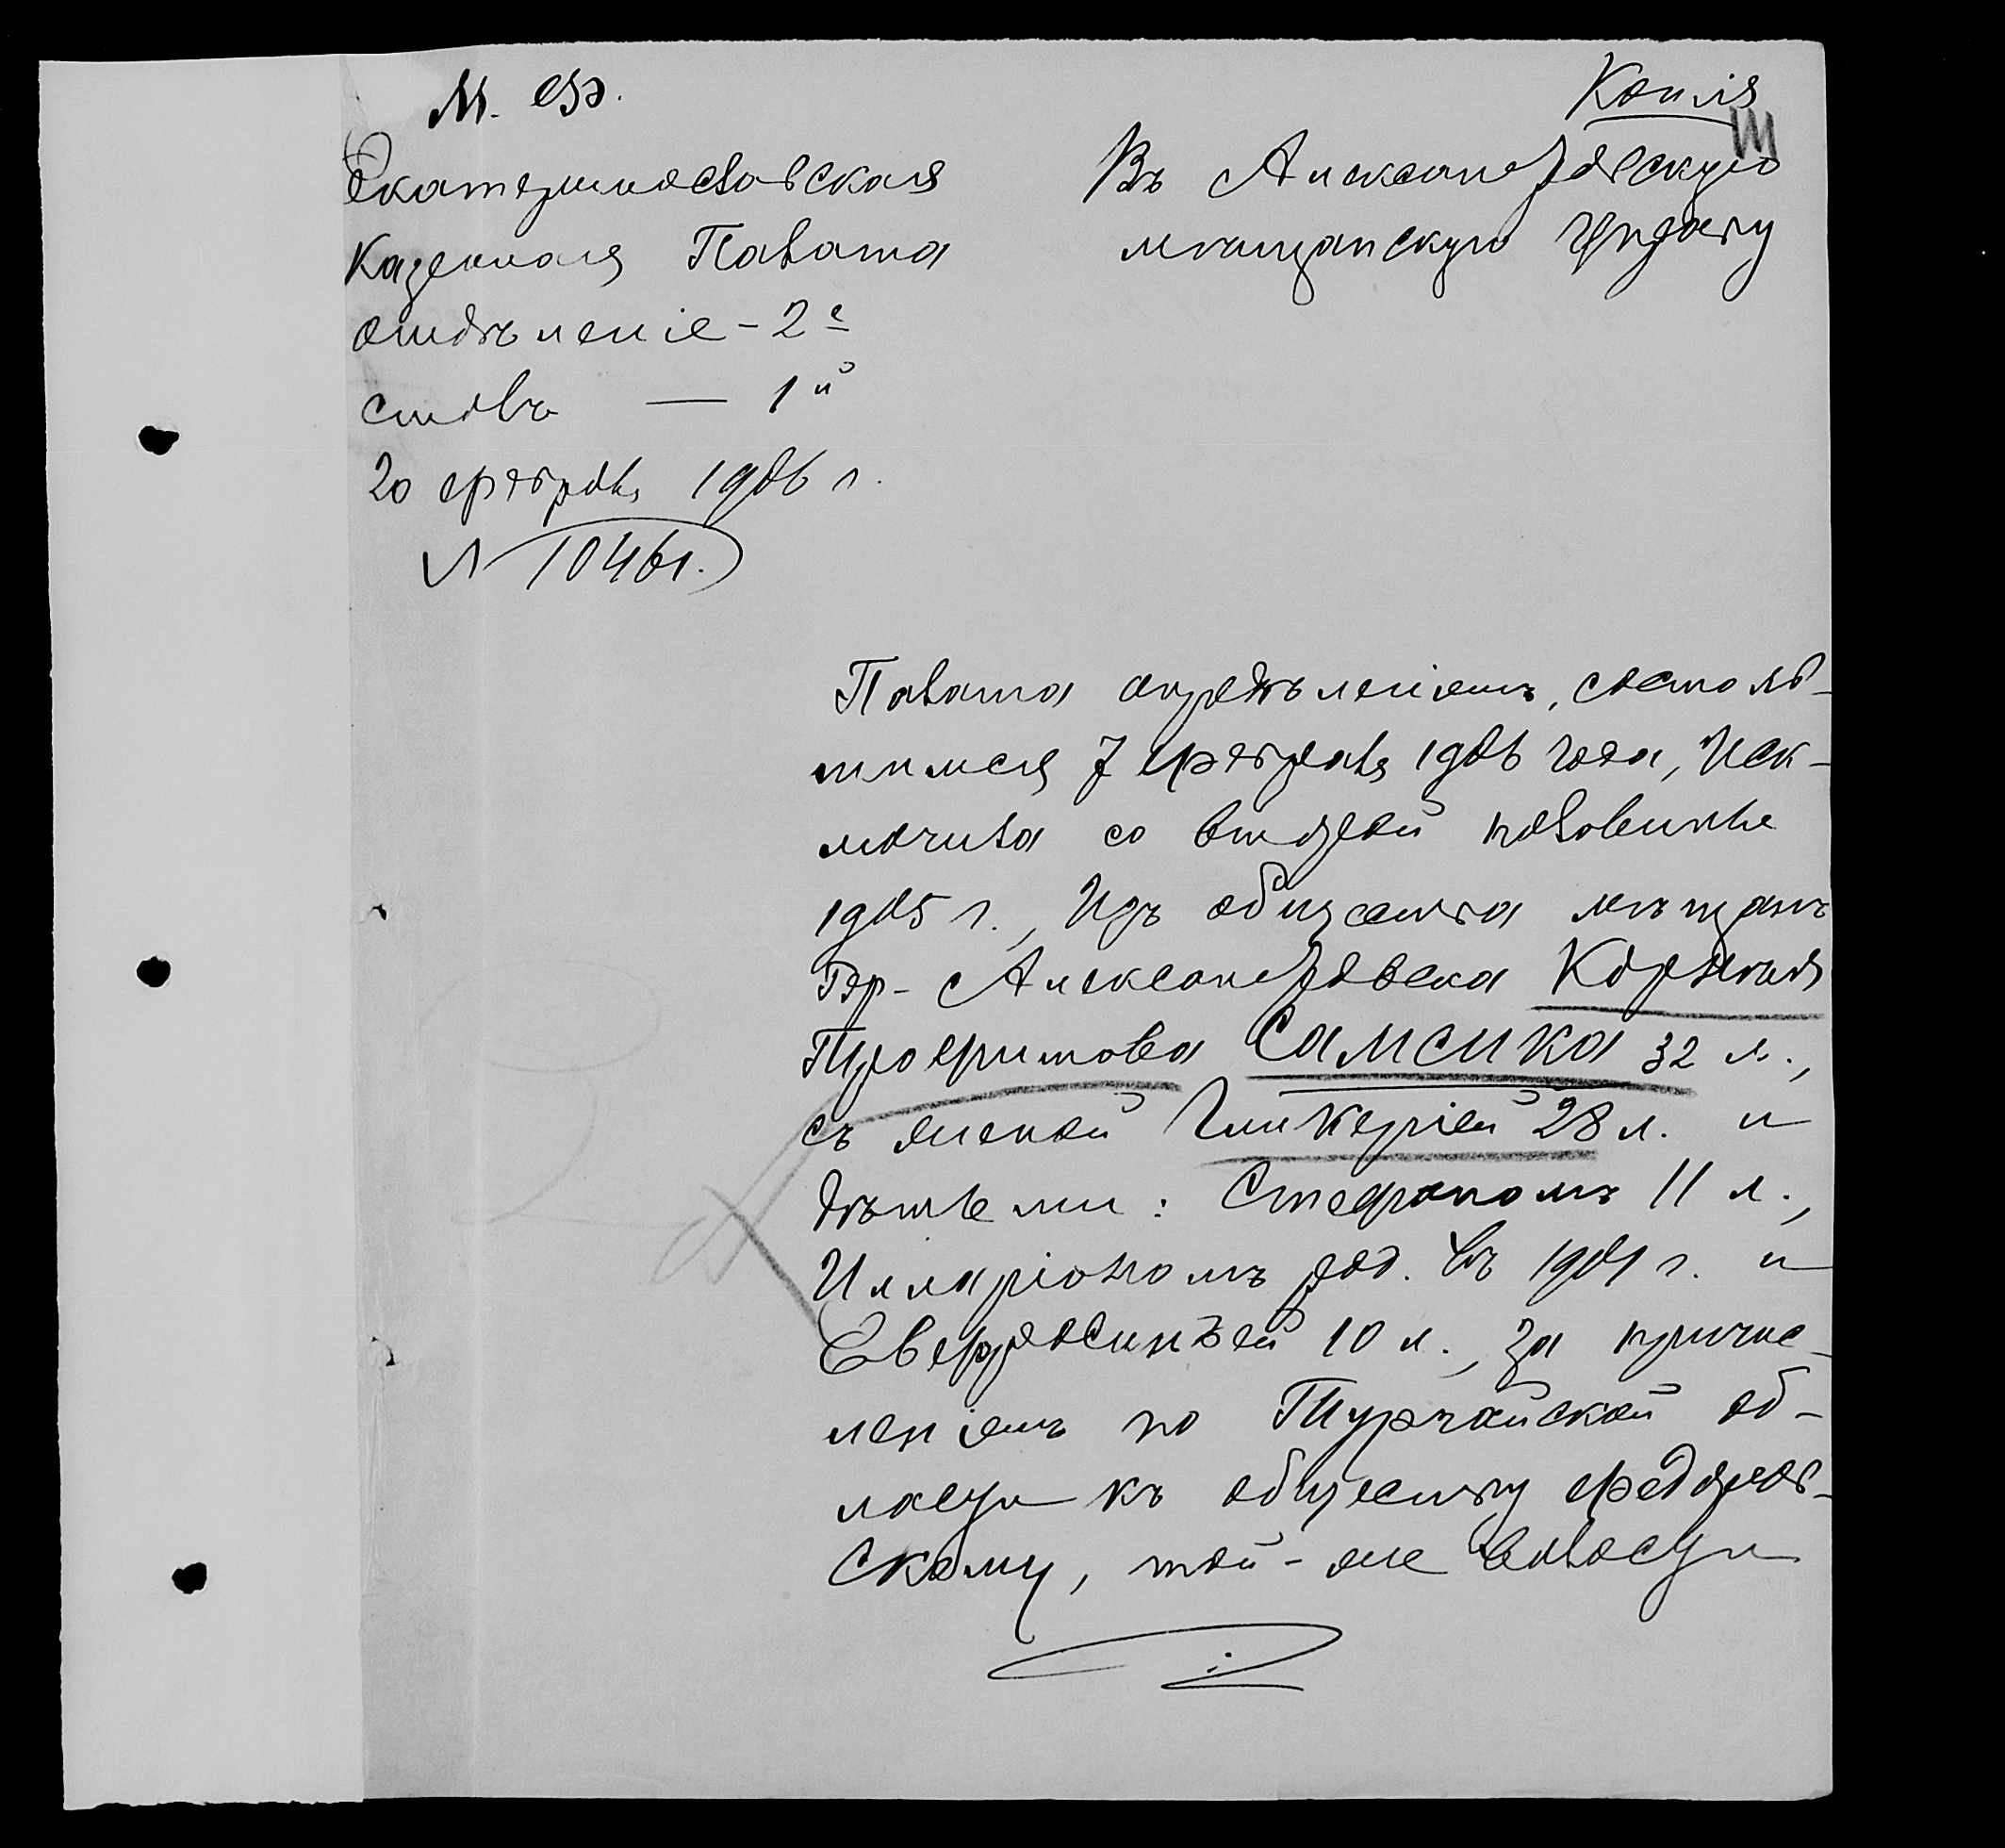 М. Ф.
Копія
Екатеринославская
Казенная Палата
отдѣленіе - 2е
столъ — 1й
20 февраля 1906 г.
№ 10461.
Въ Александровскую
мѣщанскую управу
Палата опредѣленіемъ, состояв-
шимся 7 февраля 1906 года, иск-
лючила со второй половины
1905 г., изъ общества мѣщанъ
Гор. Александровска Корнилія
Трофимова Самсика 32 л.,
съ женой Гликеріей 28 л. и
дѣтьми: Стефаномъ 11 л.,
Илларіономъ род. въ 1901 г. и
Евфросиньей 10 л., за причис-
леніемъ по Тургайской об-
ласти къ обществу Федоров-
скому, той-же волости